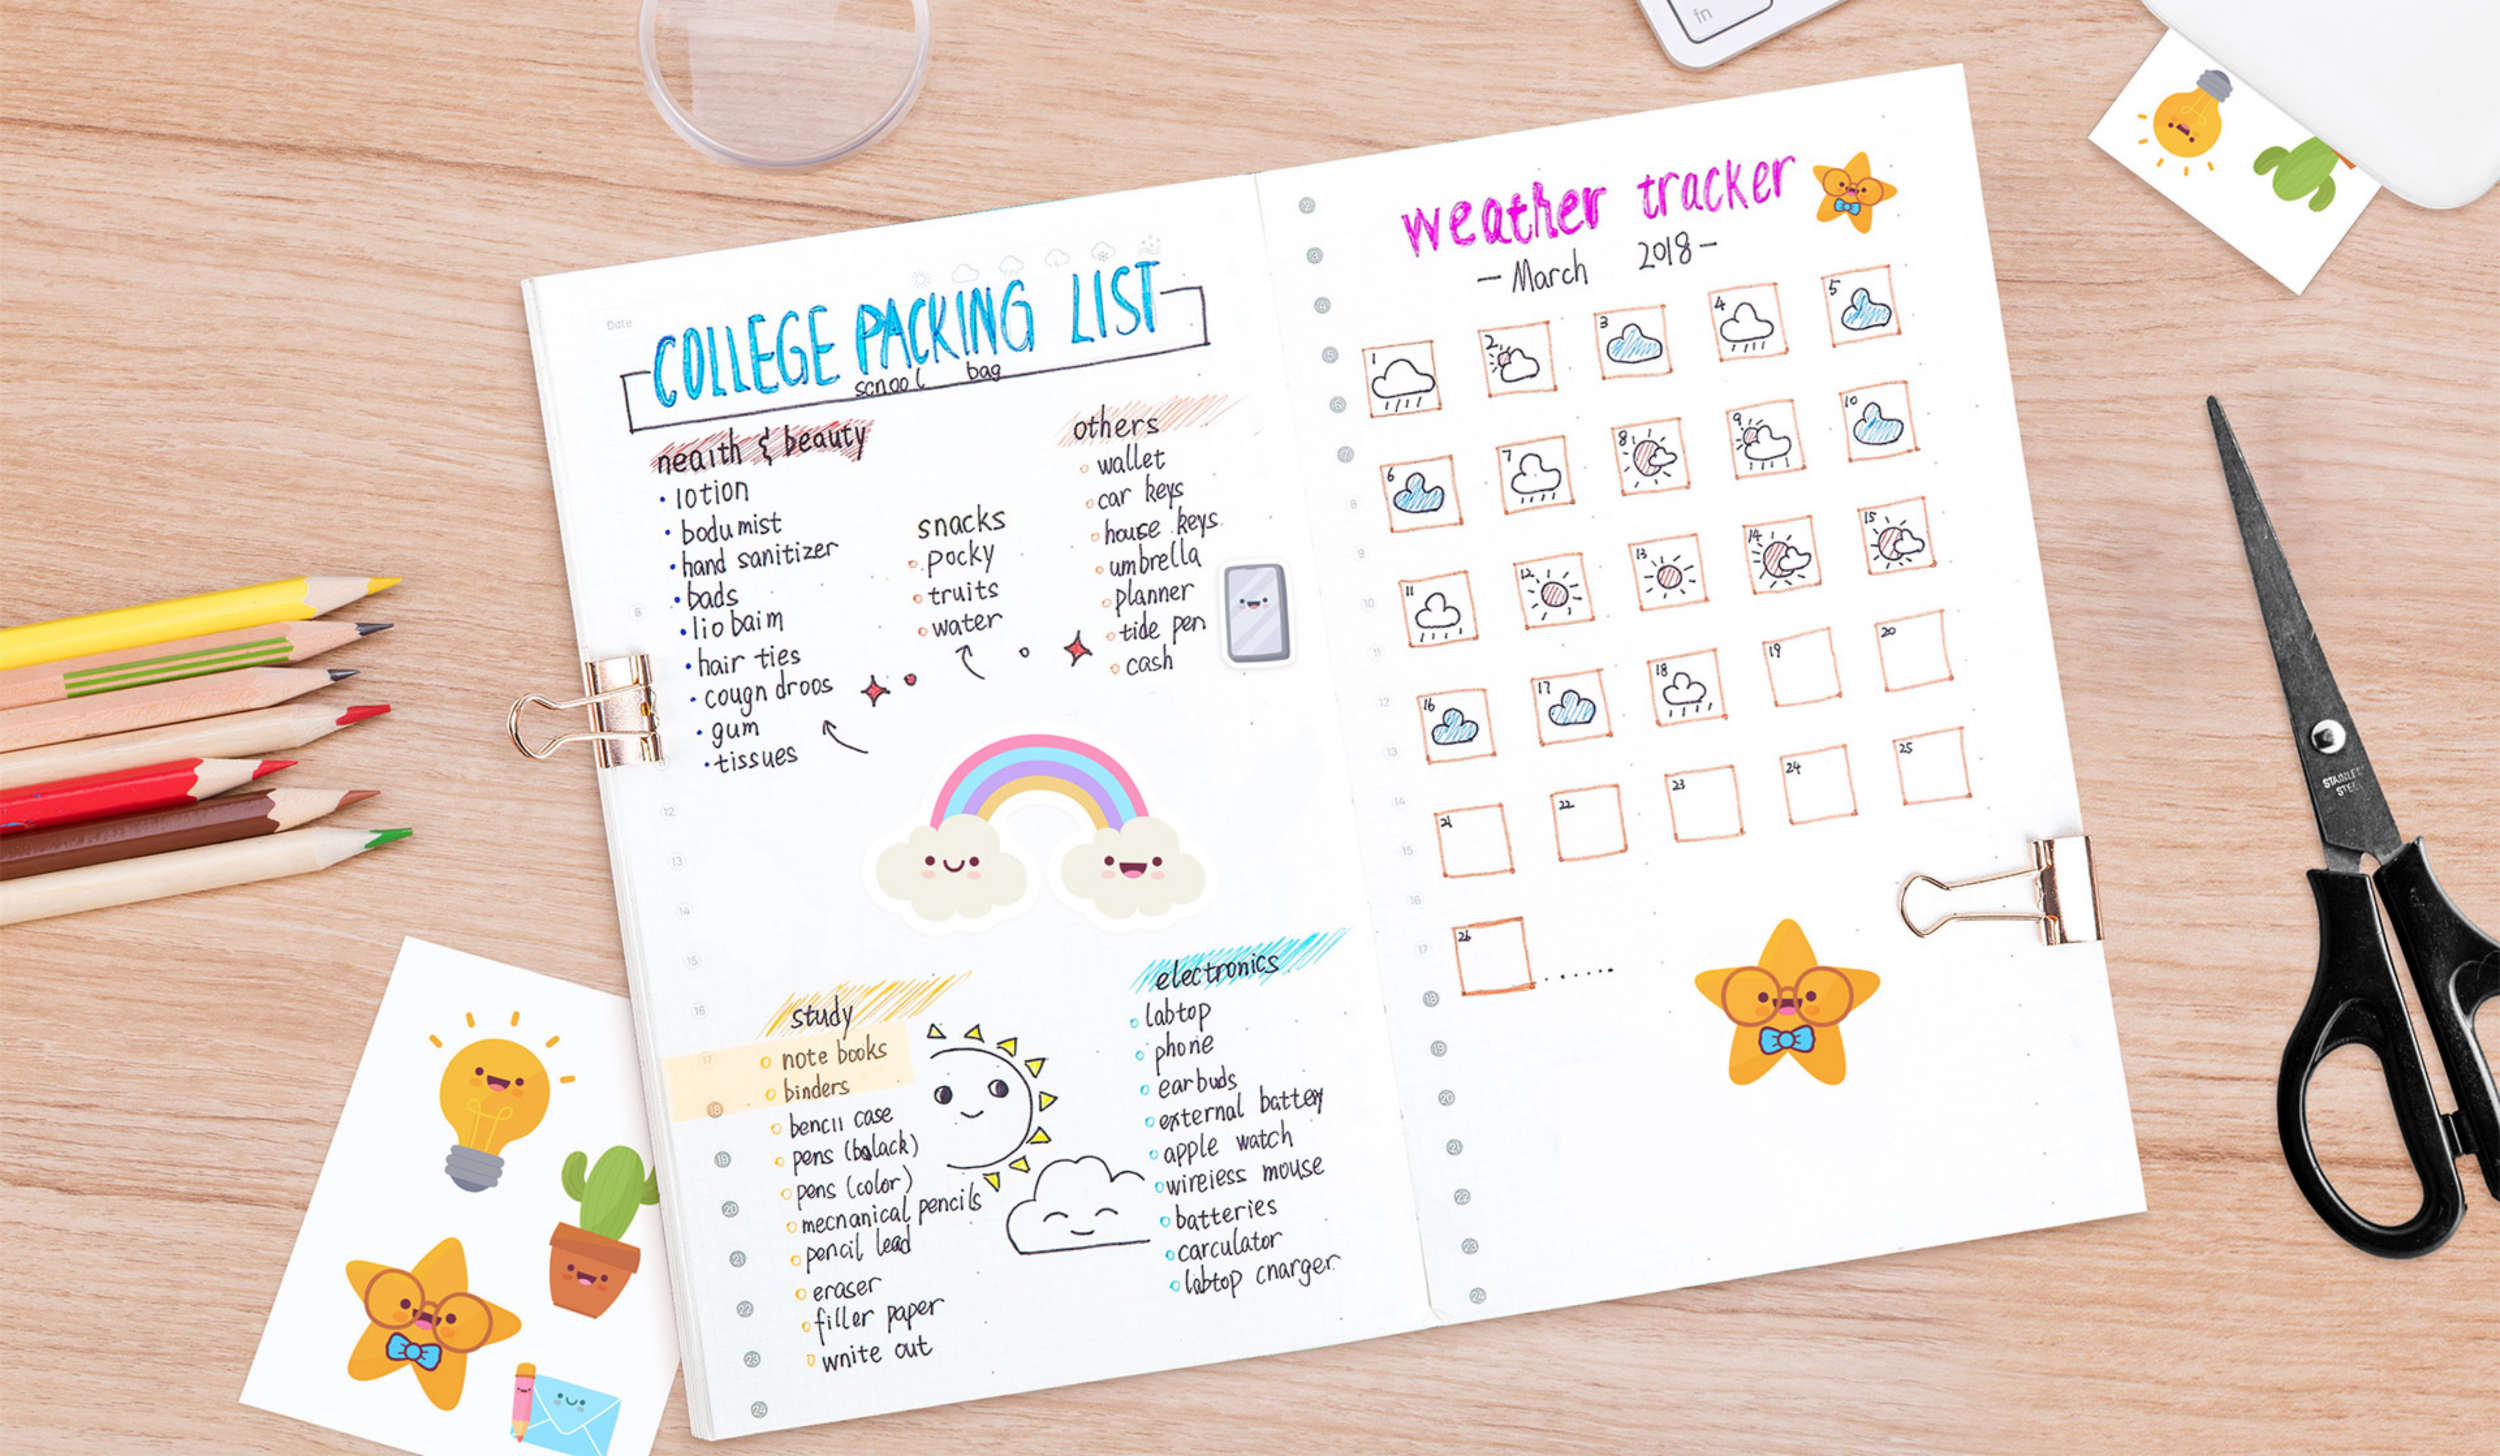 fn
Date
COLLEGE PACKING LIST
scnool bag
neaith & beauty
• lotion
• bodu mist
• hand sanitizer
• bads
• lio baim
• hair ties
• cougn droos
• gum
• tissues
snacks
pocky
truits
water
others
wallet
car keys
house keys
umbrella
planner
tide pen
cash
study
note books
binders
bencil case
pens (balack)
pens (color)
mecnanical pencils
pencil lead
eraser
filler paper
wnite out
electronics
labtop
phone
earbuds
external battery
apple watch
wireless mouse
batteries
carculator
labtop cnarger
8
12
13
14
15
16
17
18
19
20
21
22
23
24
weather tracker
- March 2018 -
1 2 3 4 5
6 7 8 9 10
11 12 13 14 15
16 17 18 19 20
21 22 23 24 25
26 ......
2
3
4
5
6
7
8
9
10
11
12
13
14
15
16
17
18
19
20
21
22
23
24
STAINLESS
STEEL